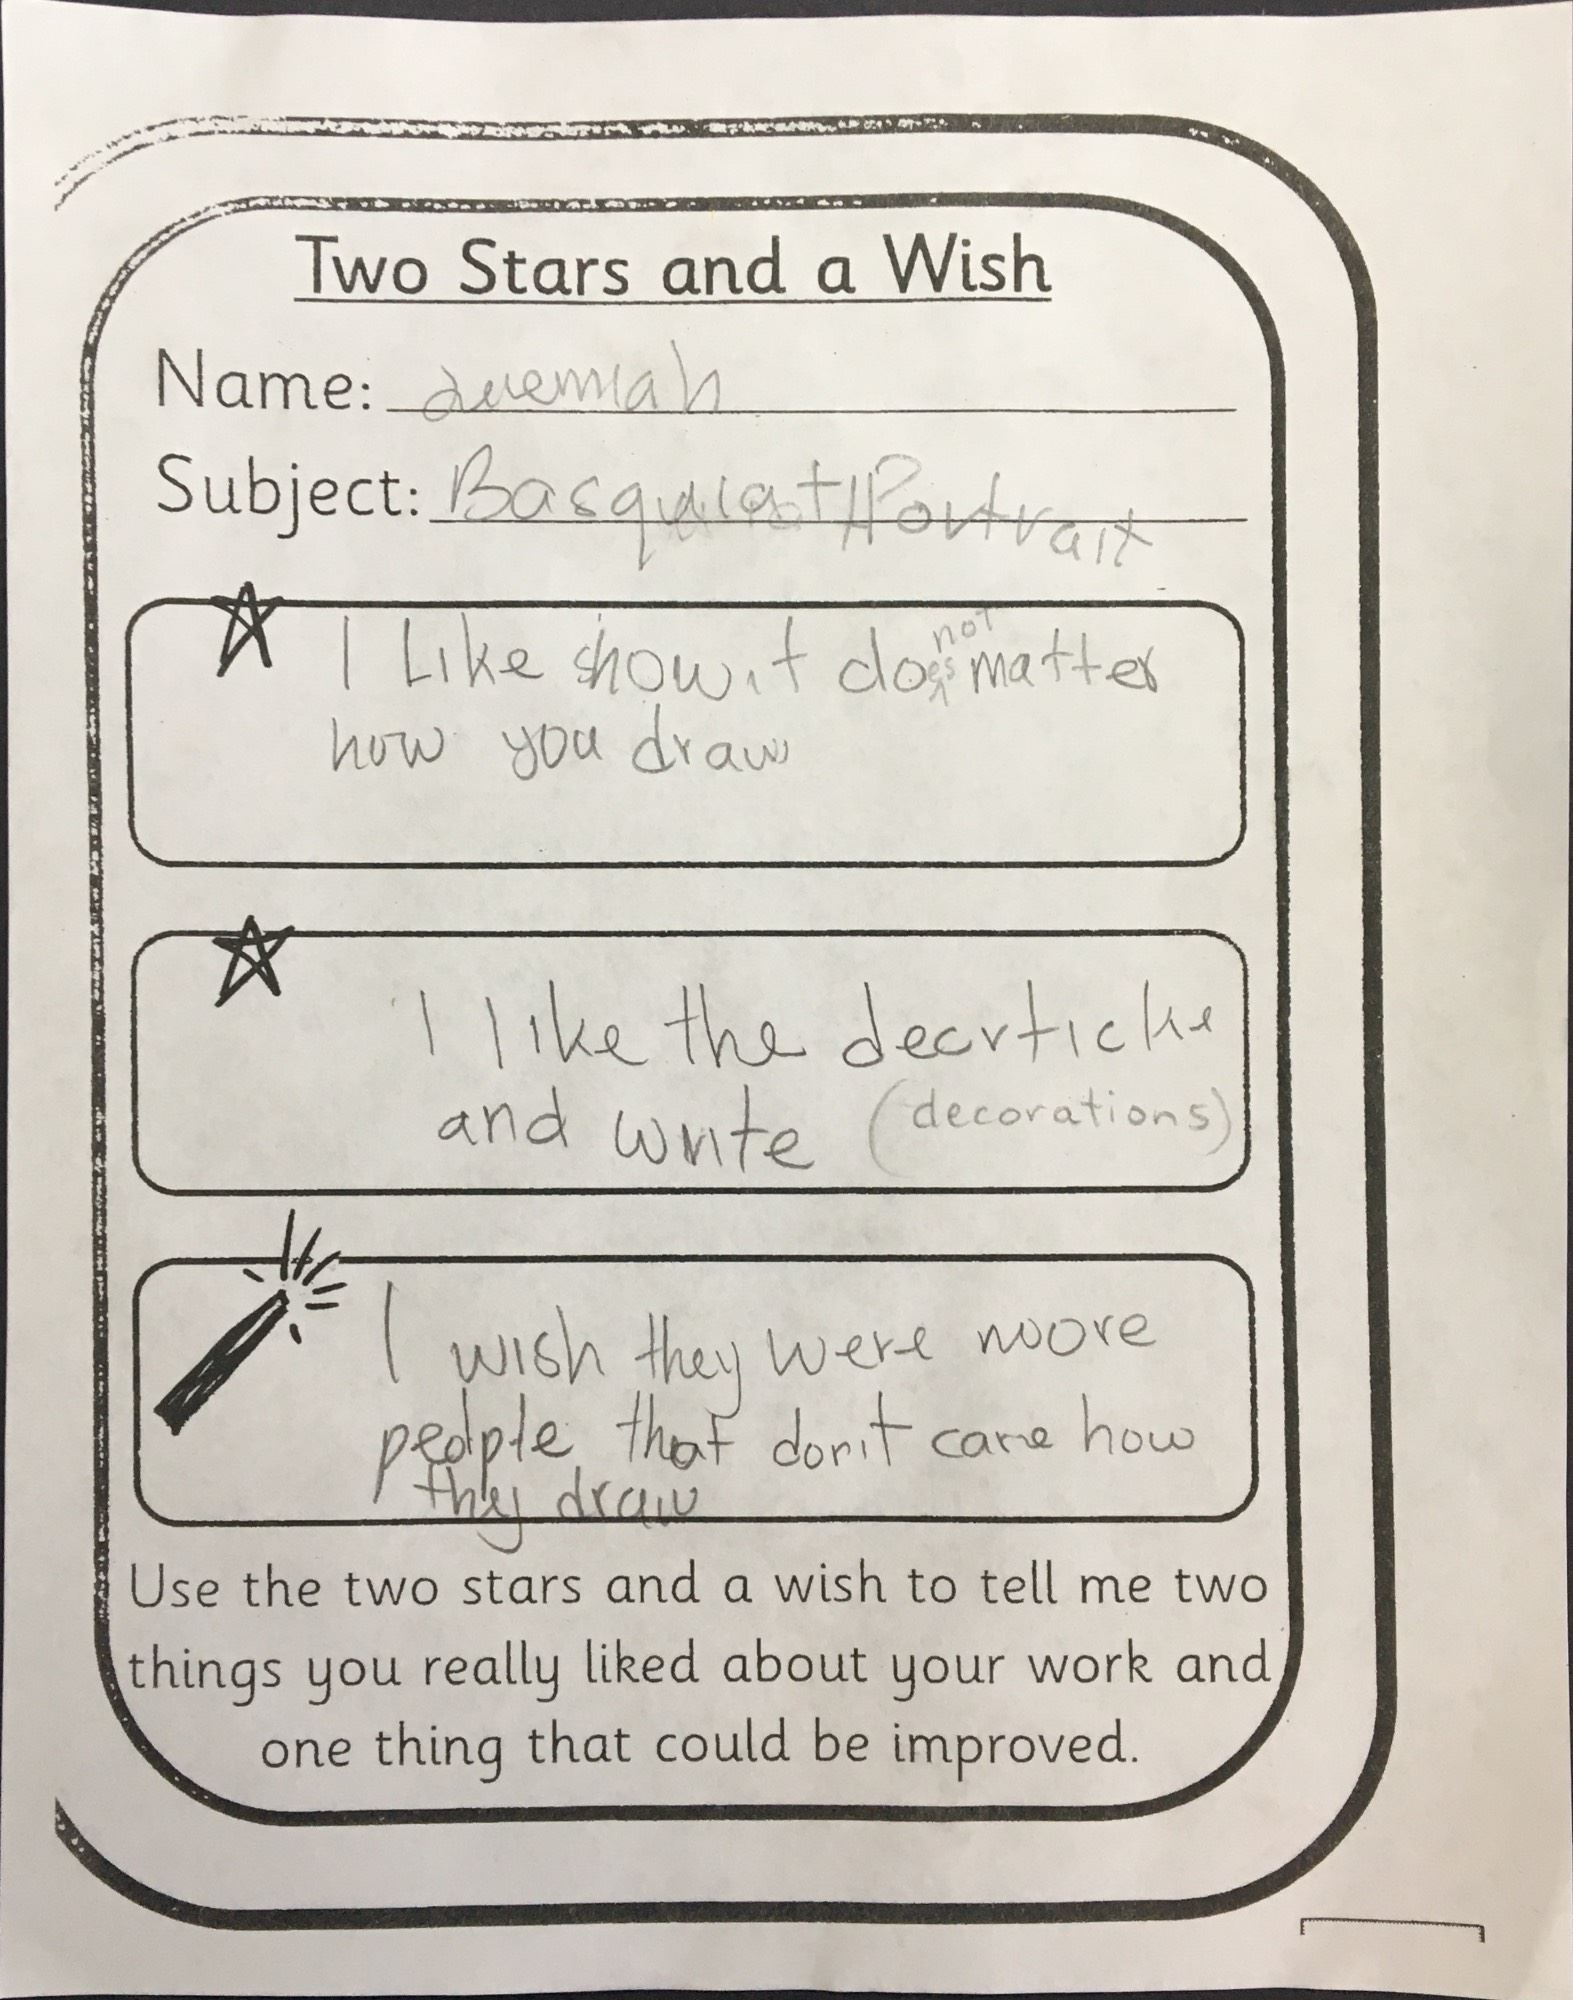 Two Stars and a Wish
Name: Jeremiah
Subject: Basquiat/Portrait
I Like show it does not matter
how you draw
I like the decrticke
and write (decorations)
I wish they were moore
people that don't care how
they draw
Use the two stars and a wish to tell me two
things you really liked about your work and
one thing that could be improved.